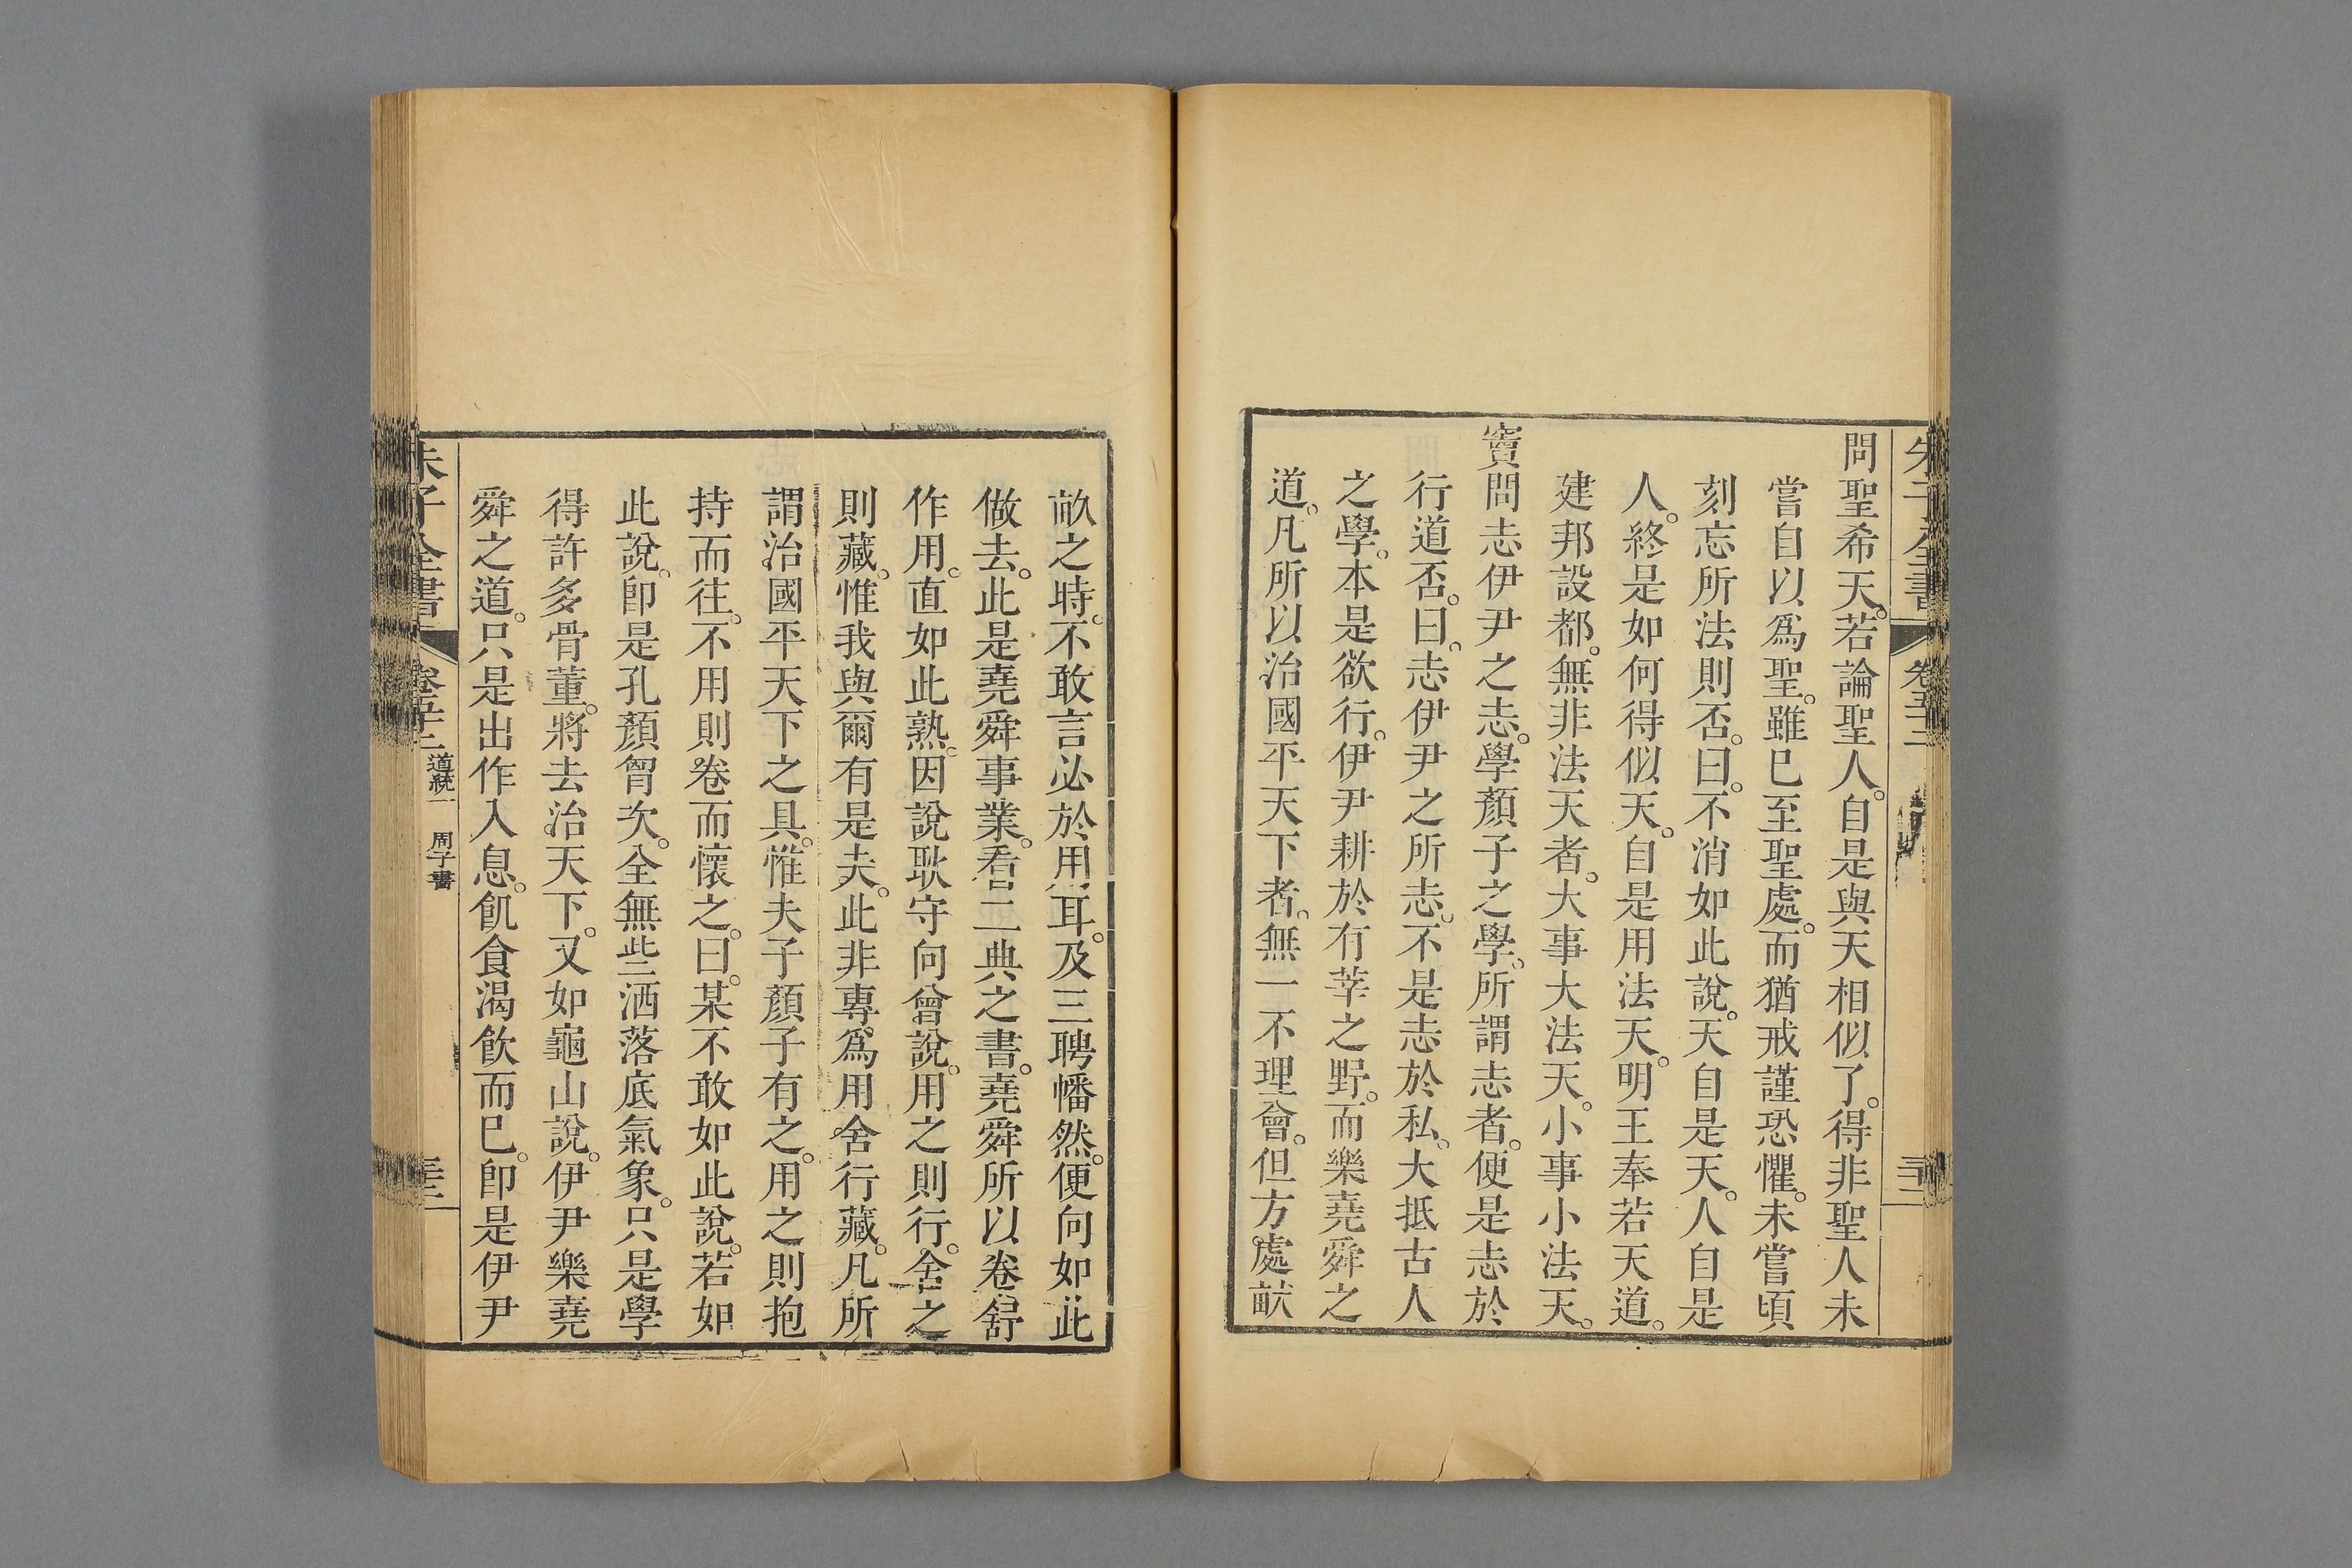 朱子全書 卷五十二
問聖希天。若論聖人。自是與天相似了。得非聖人未
嘗自以爲聖。雖已至聖處。而猶戒謹恐懼。未嘗頃
刻忘所法則否。曰。不消如此說。天自是天。人自是
人。終是如何得似天。自是用法天。明王奉若天道。
建邦設都。無非法天者。大事大法天。小事小法天。
竇問志伊尹之志。學顏子之學。所謂志者。便是志於
行道否。曰。志伊尹之所志。不是志於私。大抵古人
之學。本是欲行。伊尹耕於有莘之野。而樂堯舜之
道。凡所以治國平天下者。無一不理會。但方處畎
畝之時。不敢言必於用耳。及三聘幡然。便向如此
做去。此是堯舜事業。看二典之書。堯舜所以卷舒
作用。直如此熟。因說耿守向曾說。用之則行。舍之
則藏。惟我與爾有是夫。此非專爲用舍行藏。凡所
謂治國平天下之具。惟夫子顏子有之。用之則抱
持而往。不用則卷而懷之。曰。某不敢如此說。若如
此說。卽是孔顏胷次。全無些洒落底氣象。只是學
得許多骨董。將去治天下。又如龜山說。伊尹樂堯
舜之道。只是出作入息。飢食渴飲而已。卽是伊尹
朱子全書 卷五十二 道統一 周子書